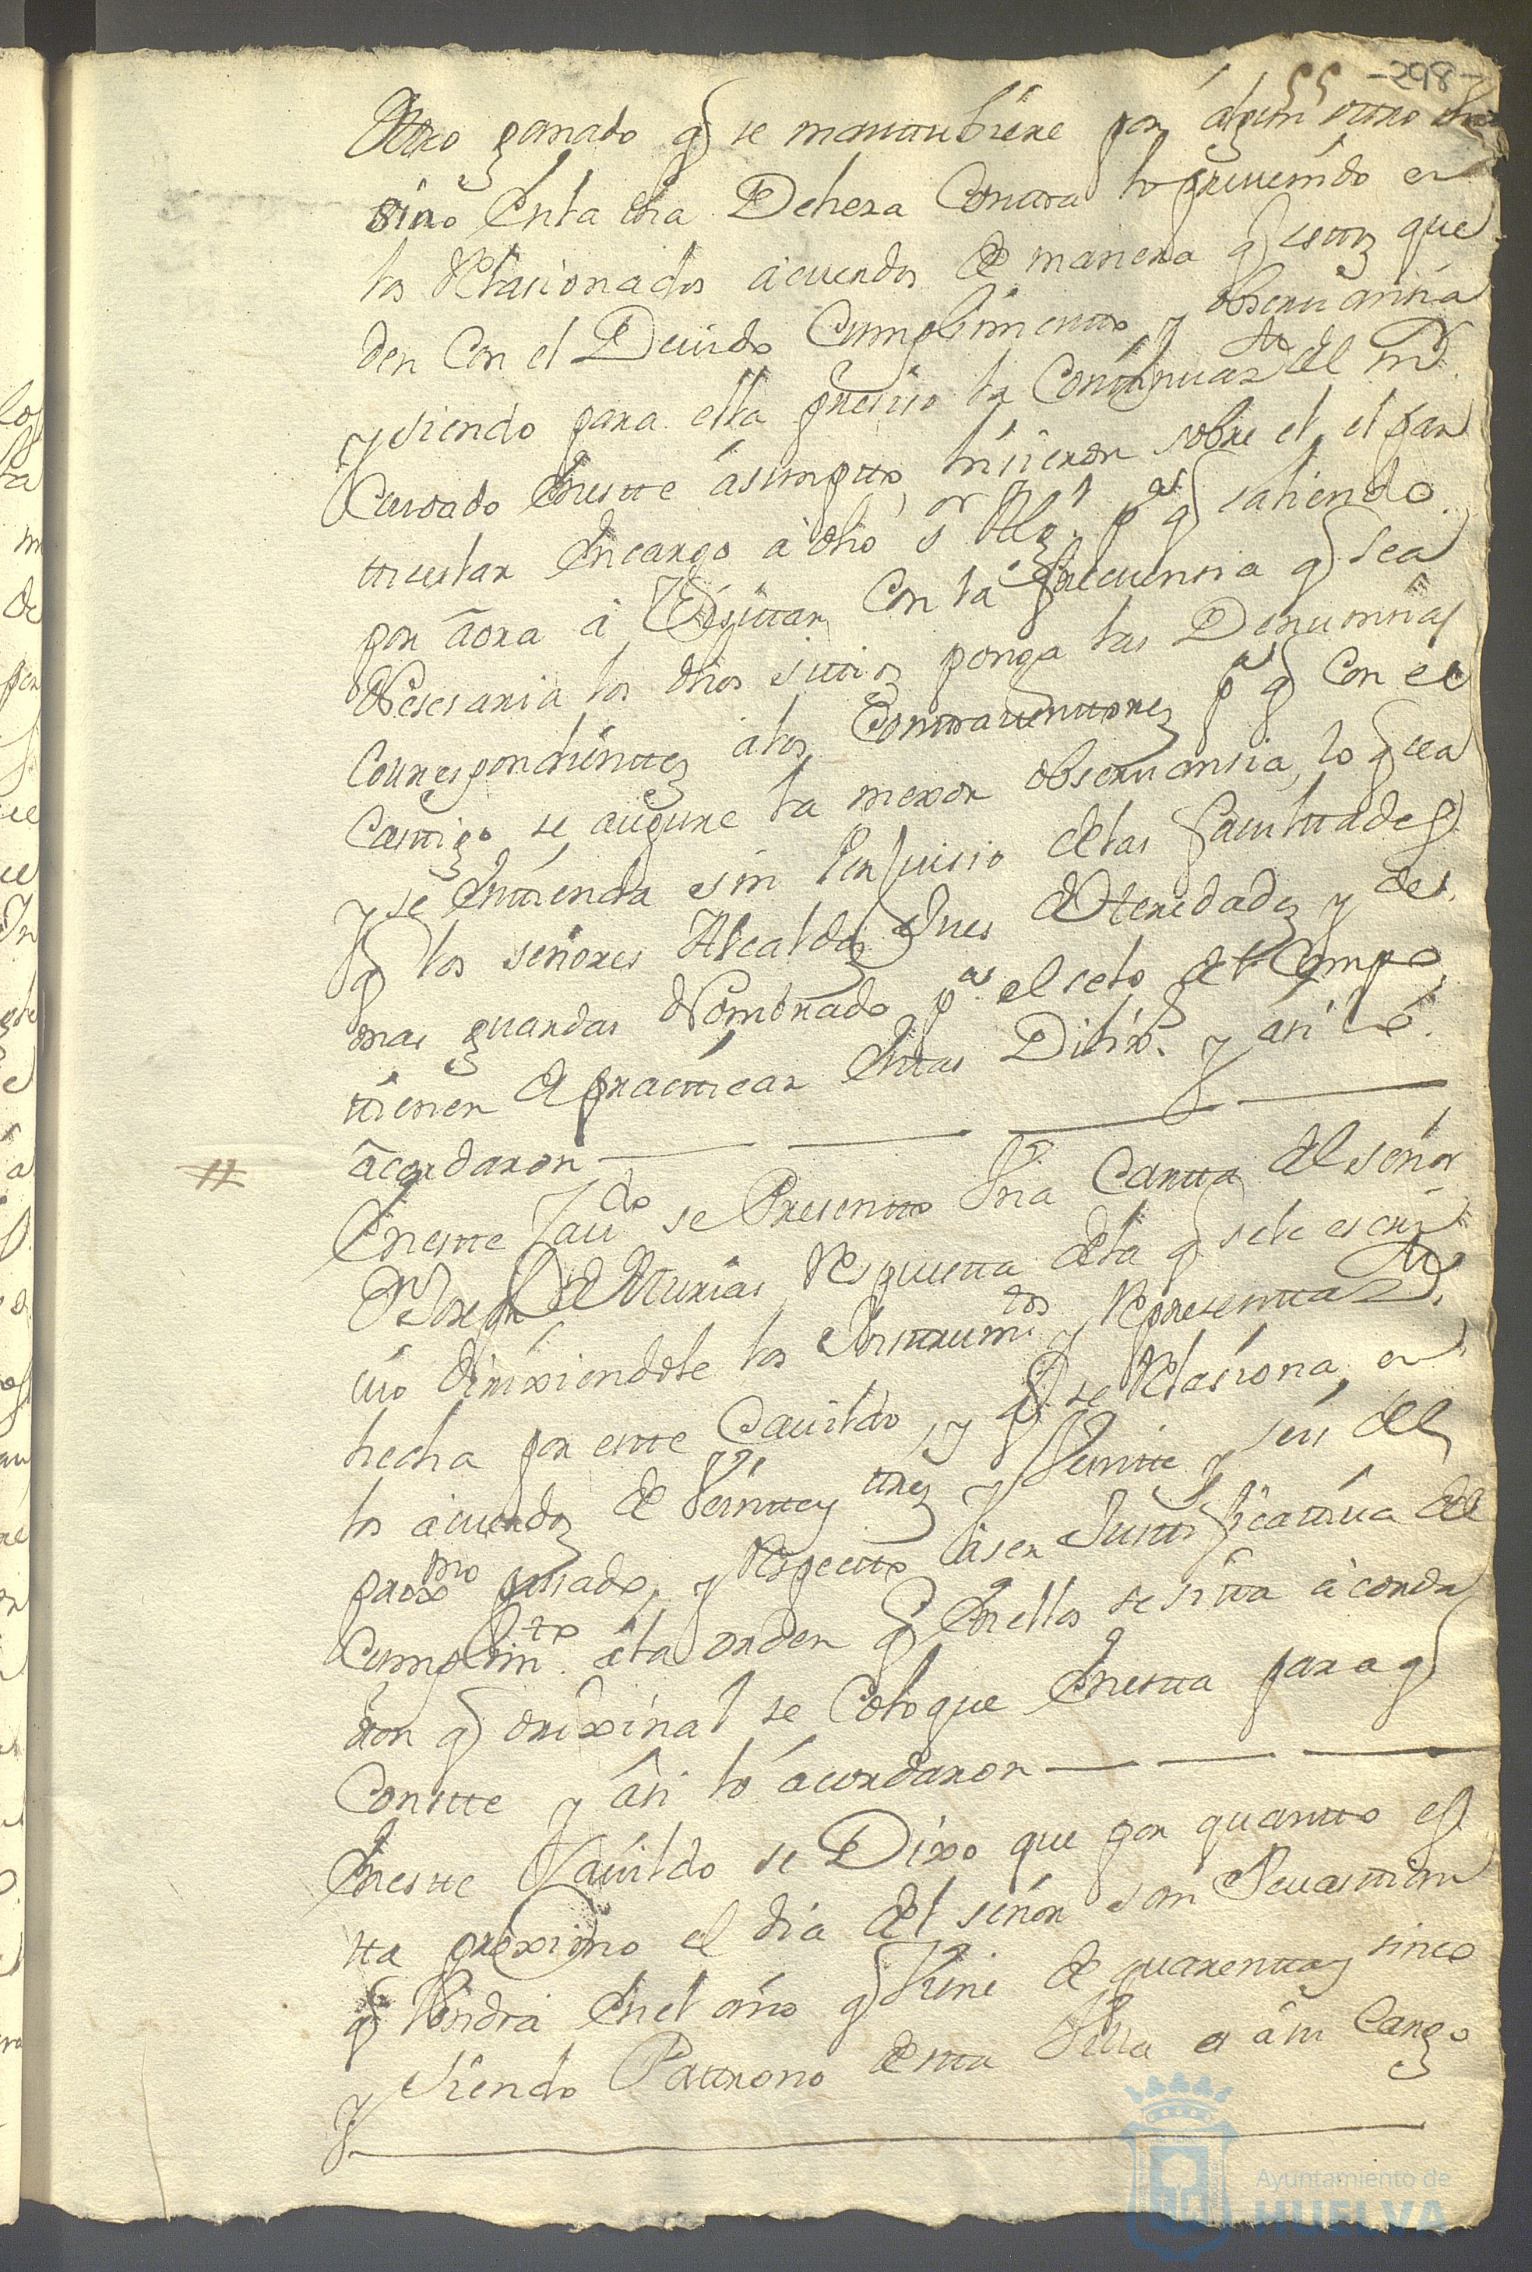 -298-
55
Otro ganado q se mantubiere por algun otro
sino enla dha Dehesa Contra lo prevenido en
los Relasionados acuerdos de manera q estos que
den Con el Devido Cumplimiento, y observansia
y siendo para ella presiso la Continuaz.on del m.r
Cuidado eneste asumpto, hisieron sobre el, el par
ticular encargo a dho s.or Alg.l p.a q saliendo
por aora a Visittar Con la frecuensia q sea
Nesesaria los dhos sittios ponga las Denunsias
Correspondienttes a los Contraventtores p.a q Con el
Casttigo se asegure la mexor observansia, lo q sea
y se enttienda sin Perjuisio delas facultades
q los señores Alcaldes Jues de heredades y de
mas guardas Nombrado p.a el selo del Campo
ttienen de practticar esttas Dilix.s y asi lo
acordaron
Eneste Cav.do se Presentto Una Cartta del señor
D.n Joseph de Asturias Respuesta dela q sele escri
vio dirixiendole los Instrum.tos y Representaz.on
hecha por este Cavildo, y q se Relasiona en
los acuerdos de Veintte y ttres y Veintte y seis del
proxmo pasado, y Respectto aser Justtificattiva del
Cumplim.to dela orden q enellos se sitta acorda
ron q orixinal se Coloque enesta para q
Constte y asi lo acordaron
Enestte Cavildo se Dixo que por quantto es
tta proximo el dia del señor san Sevasttian
q Vendra enel año q Viene de quarenta y sinco
y siendo Pattrono desta Villa a asu Cargo
Ayuntamiento de
HUELVA